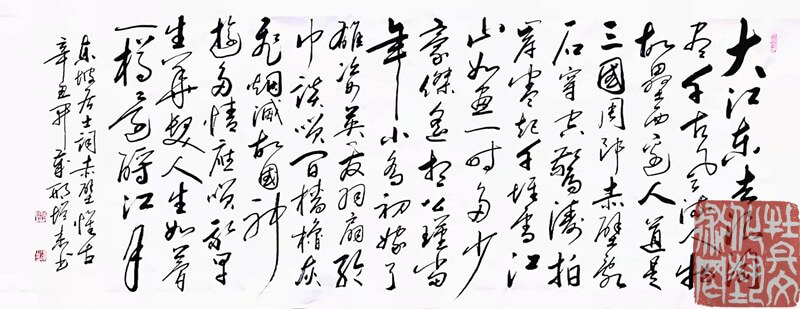 大江东去
尽千古风流人物
故壘西边人道是
三國周郎赤壁乱
石穿空驚涛拍
岸卷起千堆雪江
山如画一时多少
豪傑遥想公瑾当
年小乔初嫁了
雄姿英发羽扇纶
巾谈笑间檣橹灰
飞烟滅故國神
游多情应笑我早
生华发人生如梦
一樽还酹江月
东坡居士词赤壁怀古
辛丑年
书